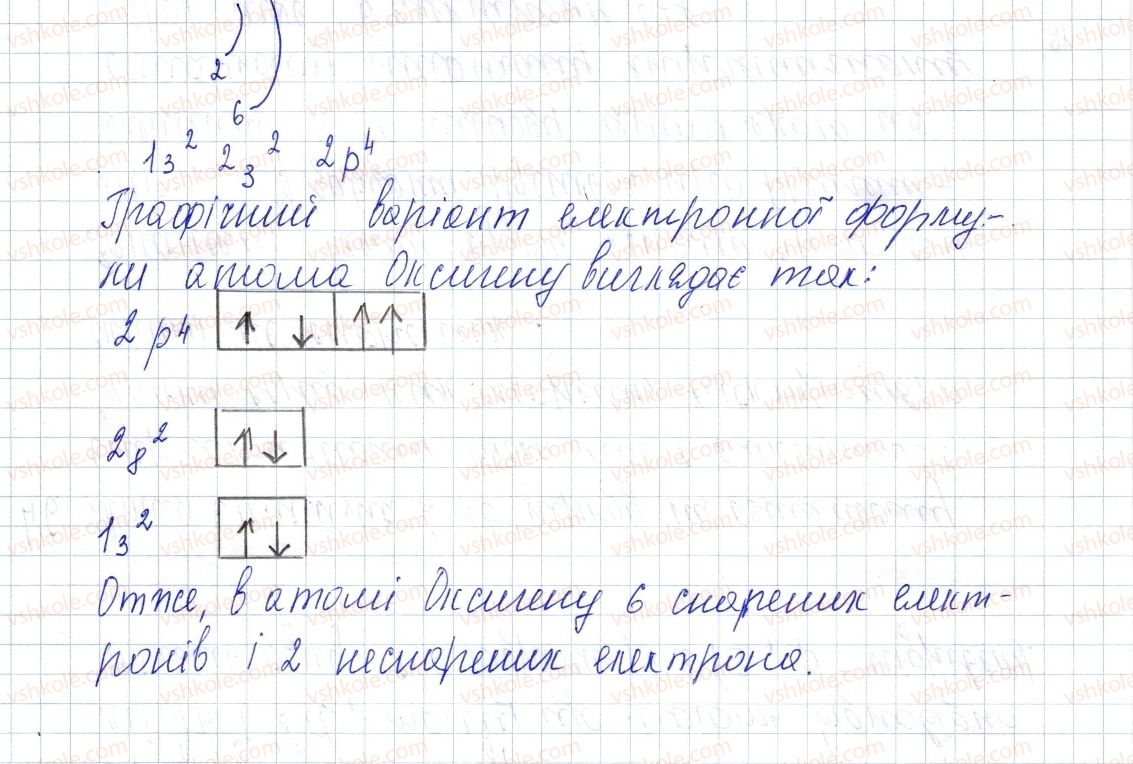 2
6
1s² 2s² 2p⁴
Графічний варіант електронної форму-
ли атома Оксигену виглядає так:
2p4 ↑ ↓ ↑ ↑
2s² ↑↓
1s² ↑↓
Отже, в атомі Оксигену 6 спарених елект-
ронів і 2 неспарених електрона.
vshkole.com